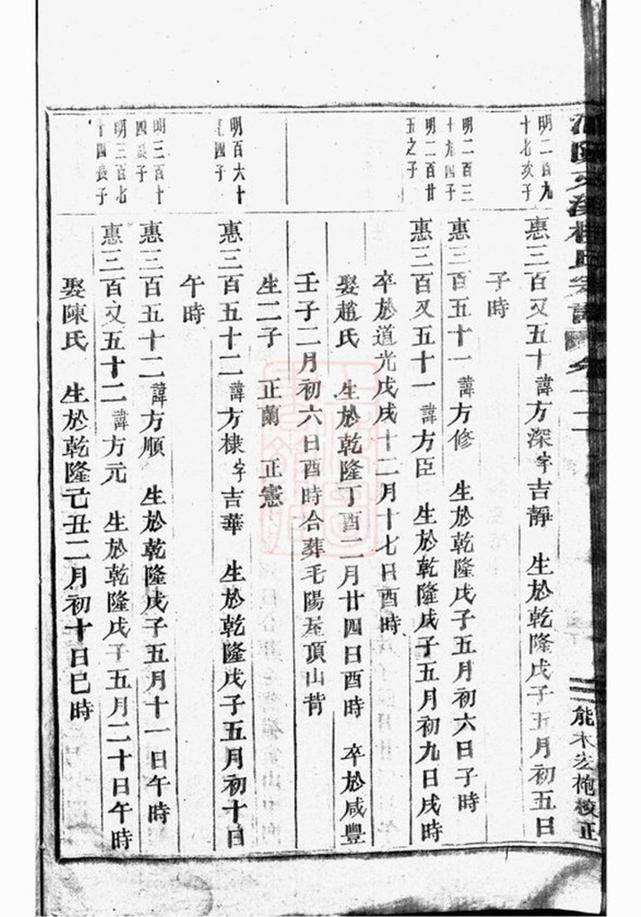 能木宏袍校正
明二百九
十七次子
惠三百又五十 諱方深字吉靜 生於乾隆戊子五月初五日
子時
明二百三
十九四子
惠三百五十一 諱方修 生於乾隆戊子五月初六日子時
明二百廿
五之子
惠三百又五十一 諱方臣 生於乾隆戊子五月初九日戌時
卒於道光戊戌十二月十七日酉時
娶趙氏 生於乾隆丁酉二月廿四日酉時 卒於咸豐
壬子二月初六日酉時合葬毛陽屋頂山背
生二子 正蘭 正憲
明百六十
四子
惠三百五十二 諱方棣字吉華 生於乾隆戊子五月初十日
午時
明三百十
四長子
惠三百五十二 諱方順 生於乾隆戊子五月十一日午時
明三百七
十四長子
惠三百又五十二 諱方元 生於乾隆戊子五月二十日午時
娶陳氏 生於乾隆己丑二月初十日巳時